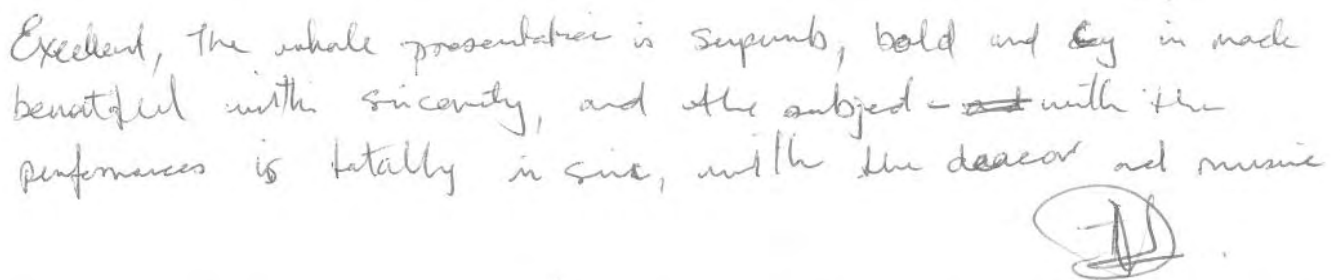 Excellent, The whole presentation is Supurb, bold and in made
beautiful with sincerity, and the subject - with the
performances is totally in sinc, with the deacor and music